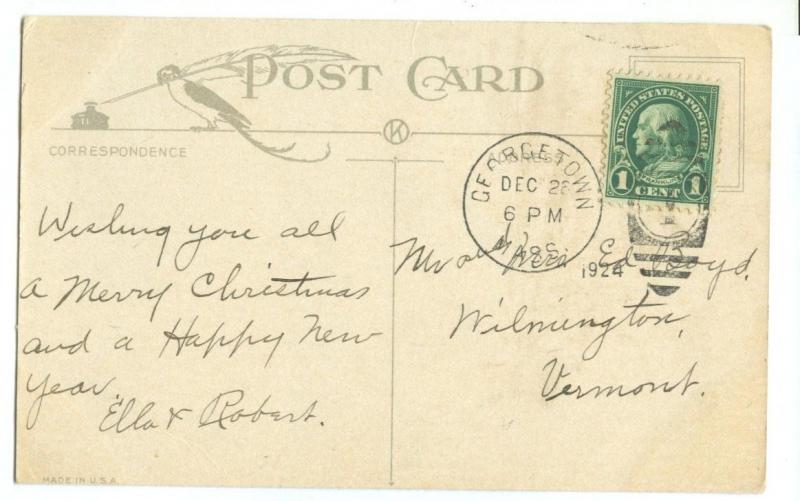 POST CARD
CORRESPONDENCE
ADDRESS
UNITED STATES POSTAGE
FRANKLIN
1 CENT 1
GEORGETOWN
DEC 22
6 PM
MASS.
1924
Wishing you all
a Merry Christmas
and a Happy New
Year.
Ella & Robert.
Mr and Mrs Ed Boyd,
Wilmington,
Vermont.
MADE IN U.S.A.